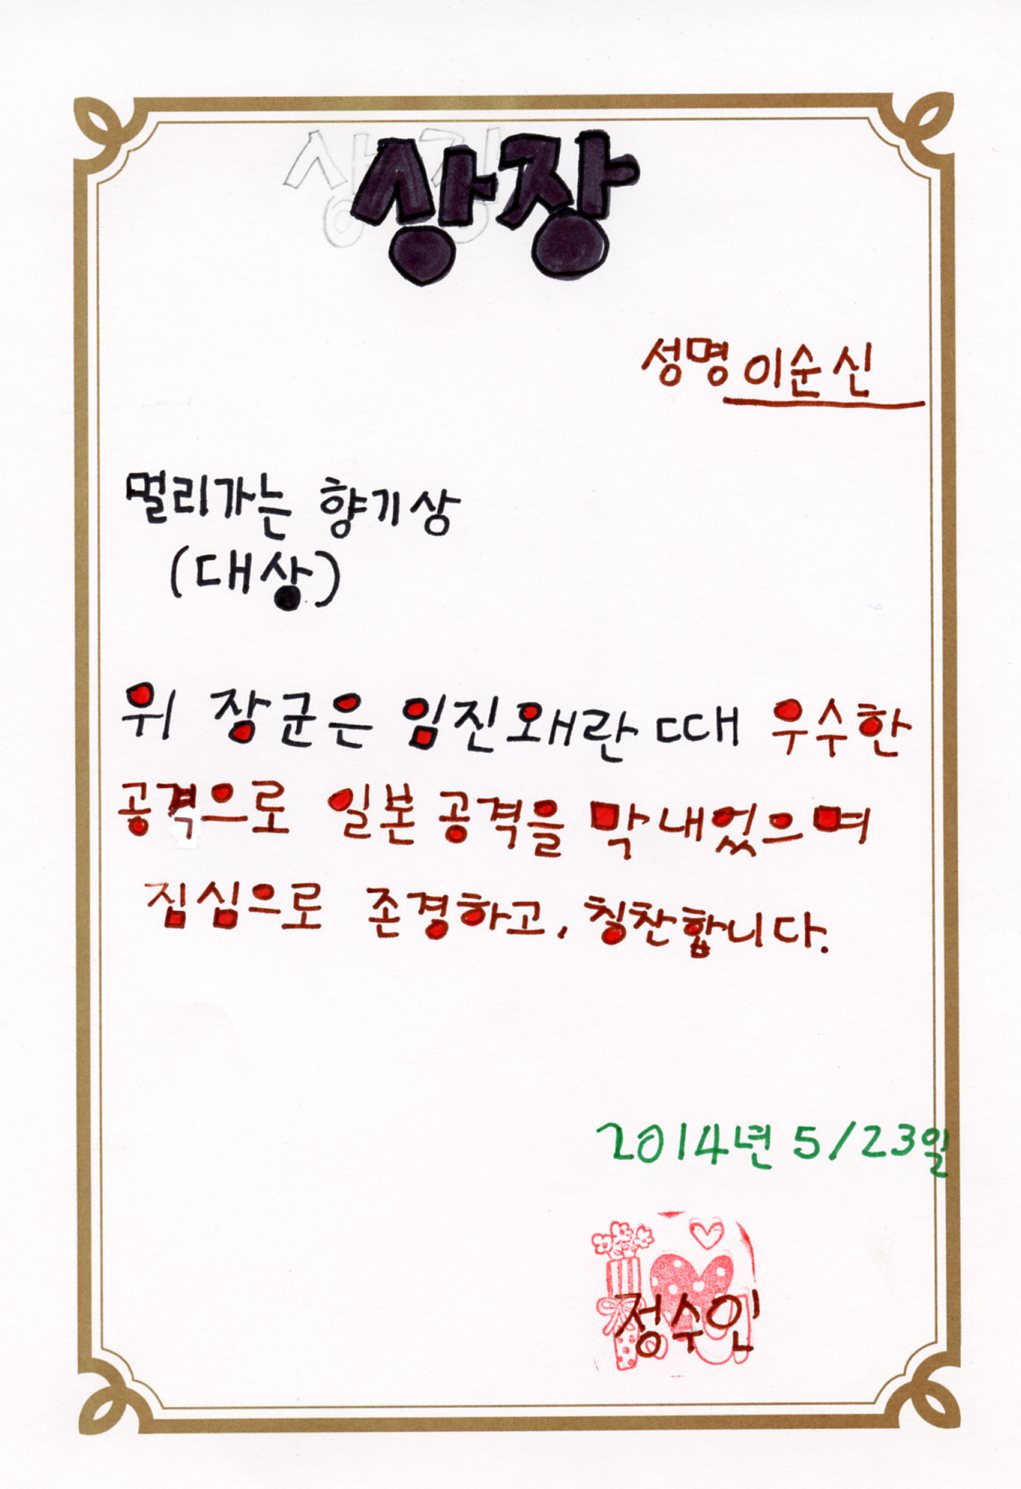 상장
성명 이순신
멀리가는 향기상
(대상)
위 장군은 임진왜란 때 우수한
공격으로 일본 공격을 막내었으며
짐심으로 존경하고, 칭찬합니다.
2014년 5/23일
정수인